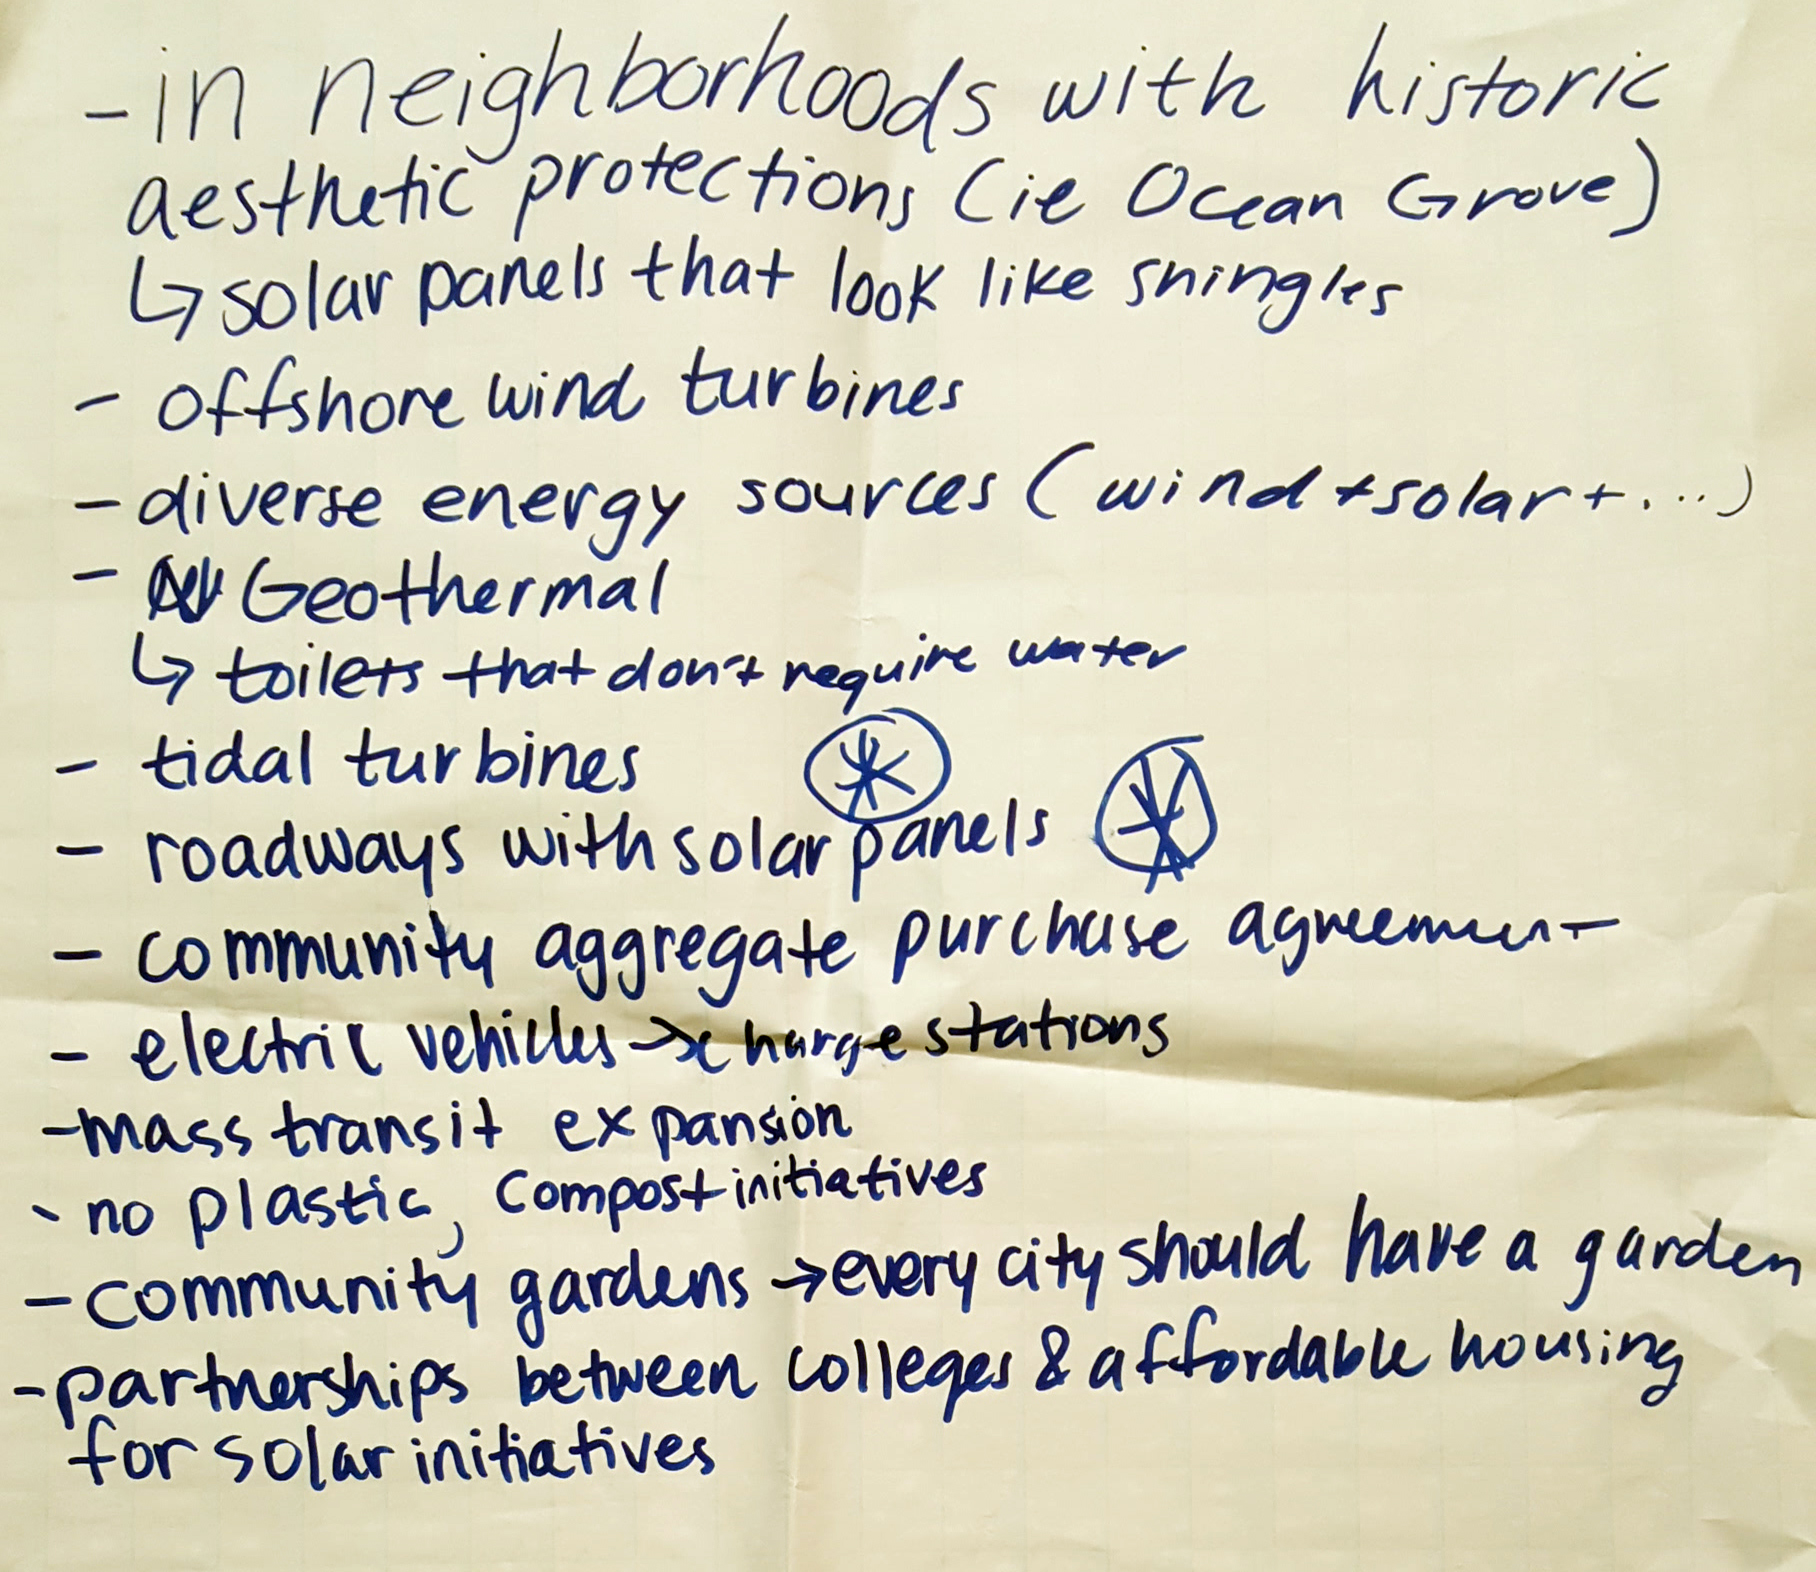 - in neighborhoods with historic
aesthetic protections (ie Ocean Grove)
↳ solar panels that look like shingles
- offshore wind turbines
- diverse energy sources (wind + solar + ...)
- Geothermal
↳ toilets that don't require water
- tidal turbines
- roadways with solar panels
- community aggregate purchase agreement
- electric vehicles → charge stations
- mass transit expansion
- no plastic, compost initiatives
- community gardens → every city should have a garden
- partnerships between colleges & affordable housing
for solar initiatives